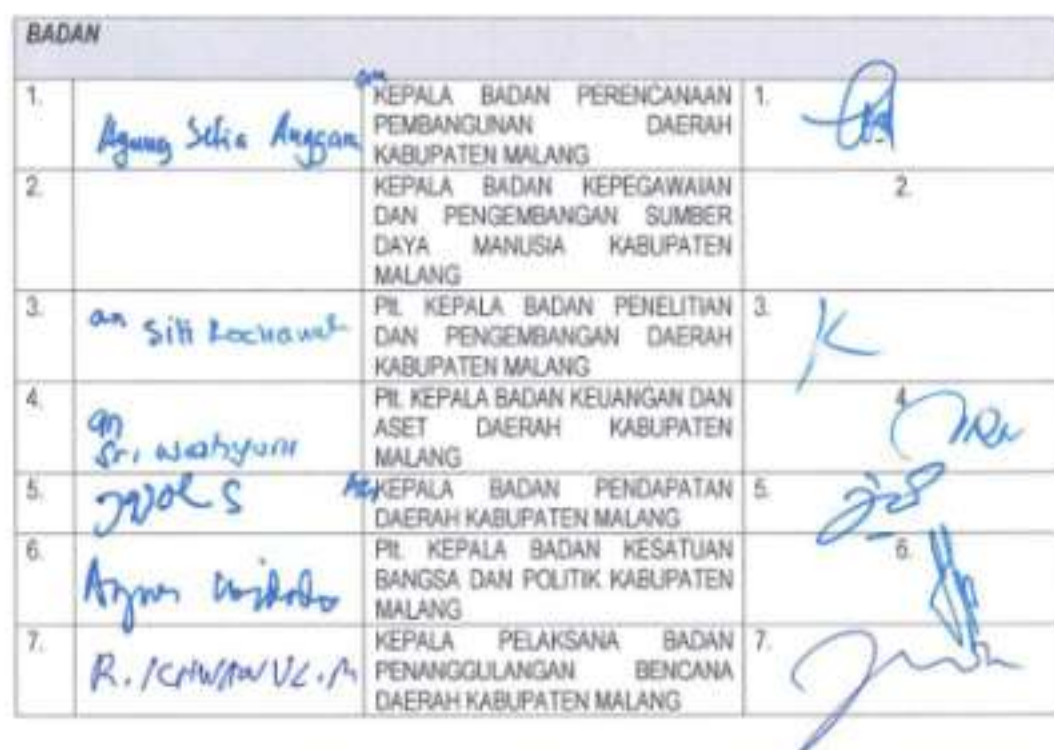 BADAN
1.
Agung Setia Anggan
an
KEPALA BADAN PERENCANAAN
PEMBANGUNAN DAERAH
KABUPATEN MALANG
1.
2.
KEPALA BADAN KEPEGAWAIAN
DAN PENGEMBANGAN SUMBER
DAYA MANUSIA KABUPATEN
MALANG
2.
3.
an Siti
Plt. KEPALA BADAN PENELITIAN
DAN PENGEMBANGAN DAERAH
KABUPATEN MALANG
3.
4.
an
Sri Wahyuni
Plt. KEPALA BADAN KEUANGAN DAN
ASET DAERAH KABUPATEN
MALANG
4.
5.
S
KEPALA BADAN PENDAPATAN
DAERAH KABUPATEN MALANG
5.
6.
Widodo
Plt. KEPALA BADAN KESATUAN
BANGSA DAN POLITIK KABUPATEN
MALANG
6.
7.
R.
KEPALA PELAKSANA BADAN
PENANGGULANGAN BENCANA
DAERAH KABUPATEN MALANG
7.